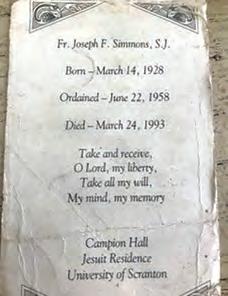 Fr. Joseph F. Simmons, S.J.
Born – March 14, 1928
Ordained – June 22, 1958
Died – March 24, 1993
Take and receive,
O Lord, my liberty,
Take all my will,
My mind, my memory
Campion Hall
Jesuit Residence
University of Scranton